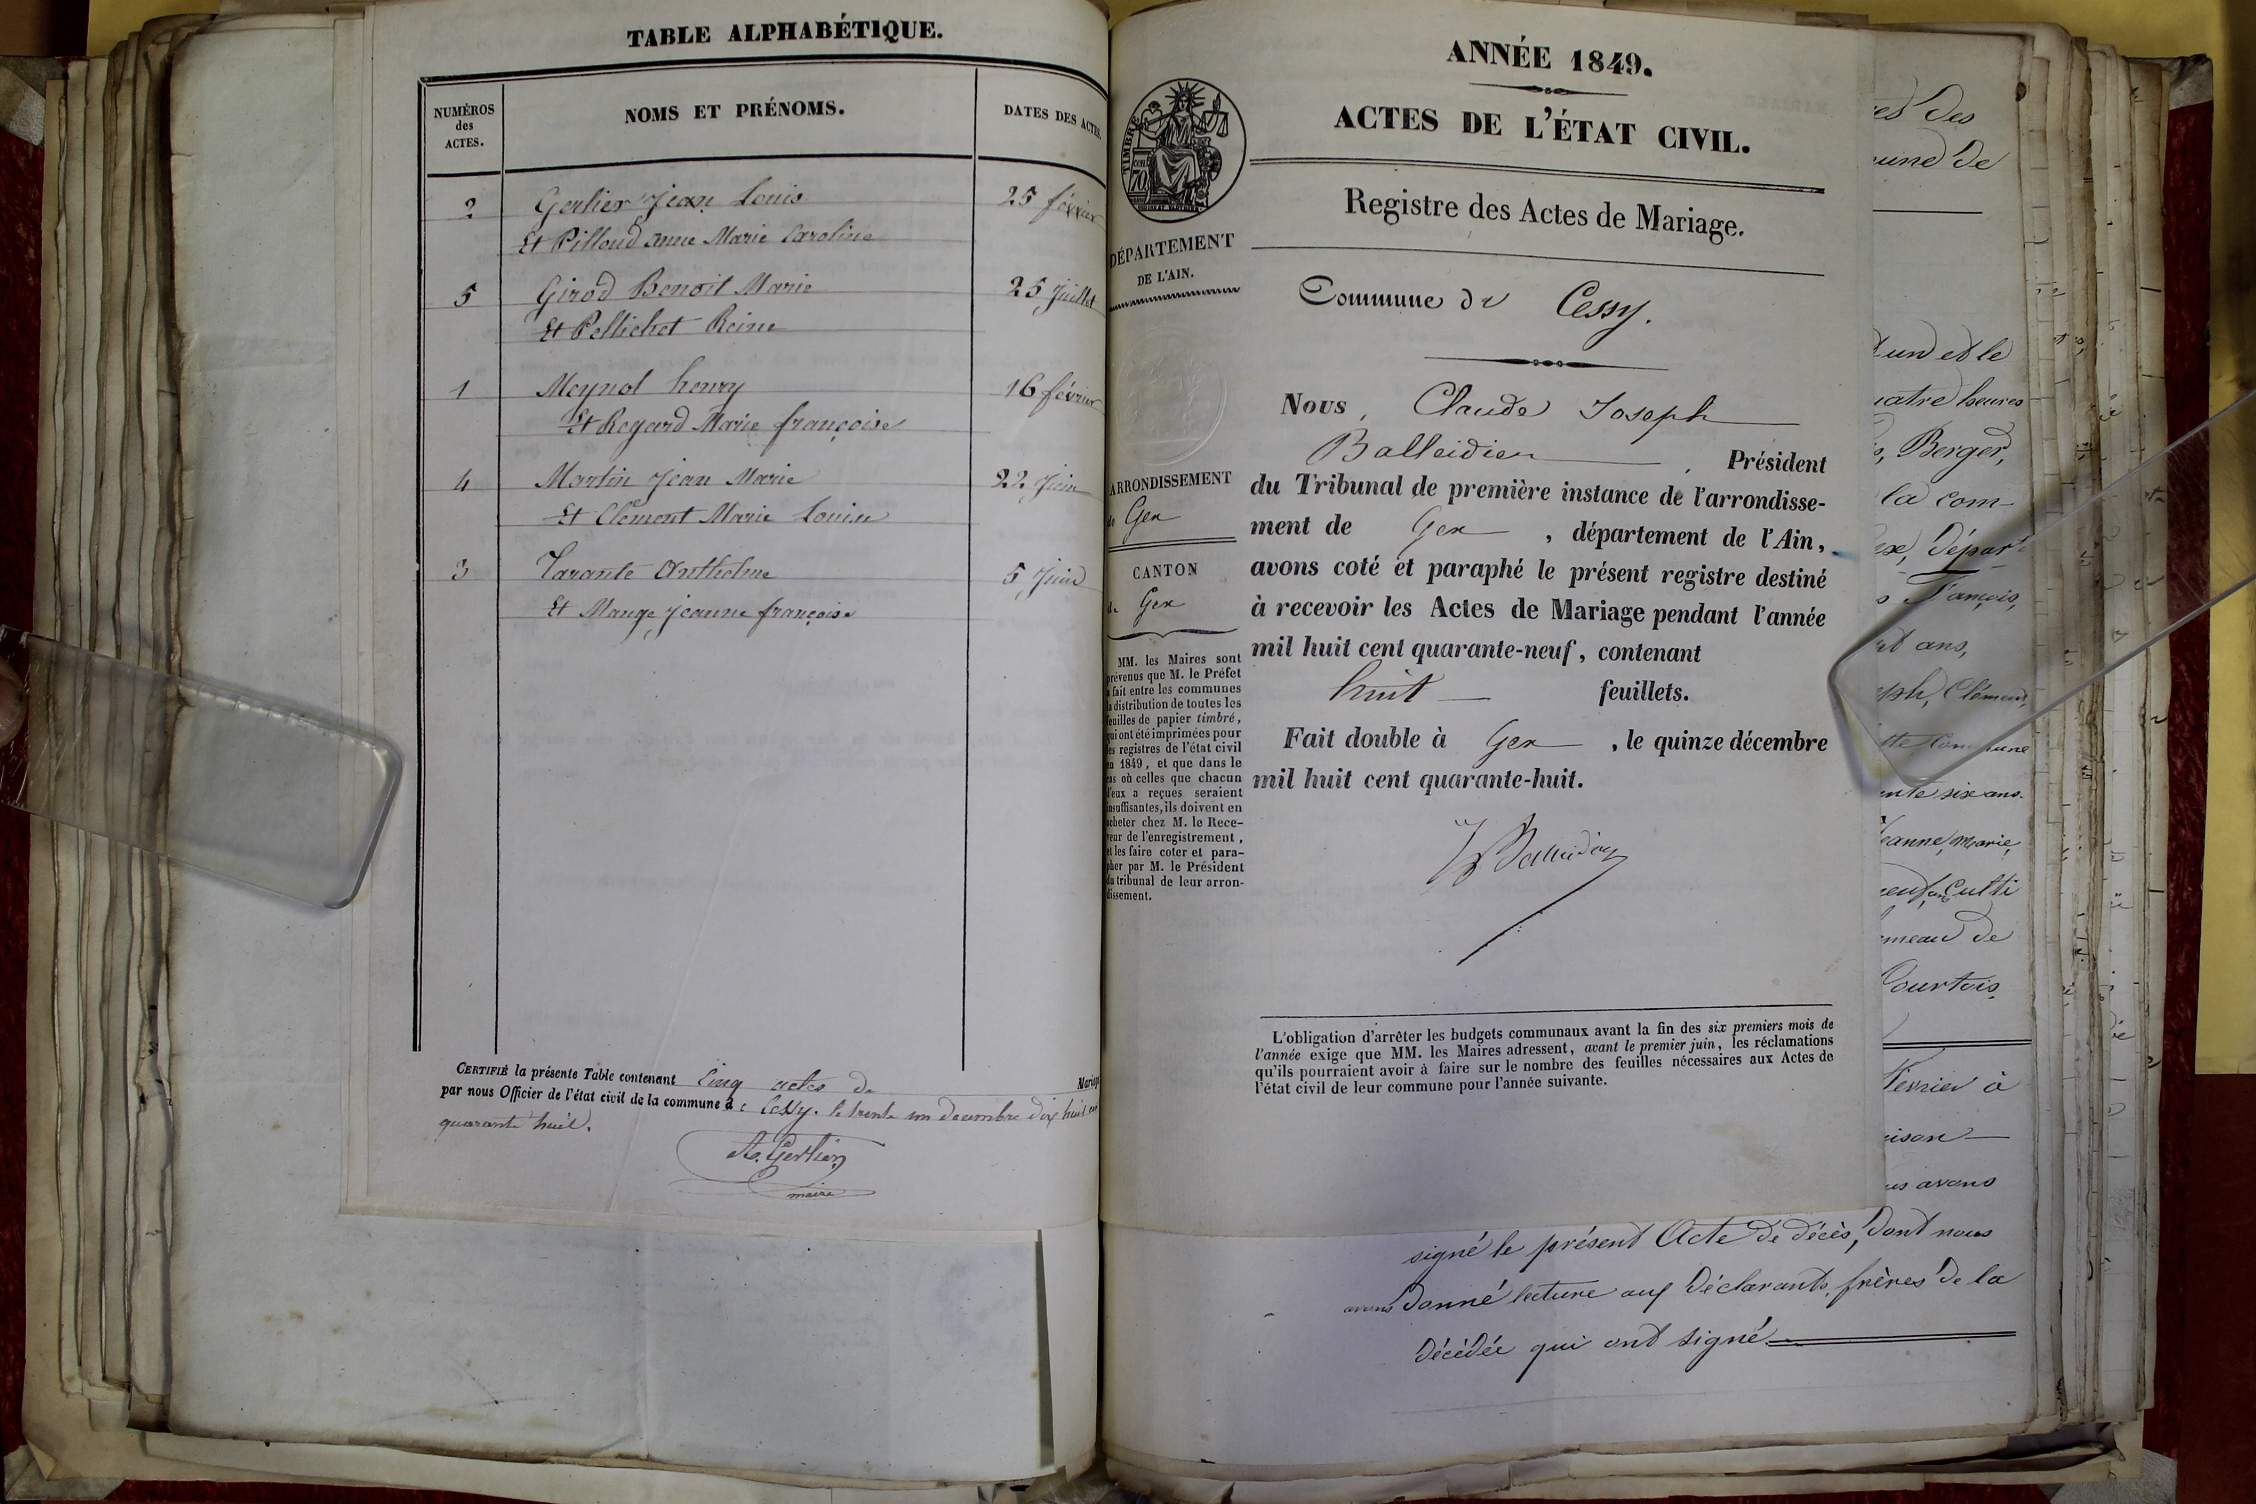 TABLE ALPHABÉTIQUE.
NUMÉROS des ACTES.
NOMS ET PRÉNOMS.
DATES DES ACTES.
2 Gerlier Jean Louis 25 février
Et Pilloud anne Marie Caroline
5 Girod Benoit Marie 25 Juillet
Et Pellichet Reine
1 Meynol henry 16 février
Et Regard Marie françoise
4 Martin Jean Marie 22 Juin
Et Clement Marie Louise
3 Tarante Anthelme 5 Juin
Et Mange Jeanne françoise
CERTIFIÉ la présente Table contenant Cinq actes de Mariage
par nous Officier de l'état civil de la commune de Cessy. le trente un decembre dix huit cent
quarante huit.
A. Gerlier
maire
ANNÉE 1849.
ACTES DE L'ÉTAT CIVIL.
Registre des Actes de Mariage.
TIMBRE
70 cent
DÉPARTEMENT
DE L'AIN.
Commune de Cessy.
Nous, Claude Joseph
Balleidier, Président
du Tribunal de première instance de l'arrondisse-
ment de Gex, département de l'Ain,
avons coté et paraphé le présent registre destiné
à recevoir les Actes de Mariage pendant l'année
mil huit cent quarante-neuf, contenant
huit feuillets.
Fait double à Gex, le quinze décembre
mil huit cent quarante-huit.
Balleidier
ARRONDISSEMENT
de Gex
CANTON
de Gex
MM. les Maires sont
prévenus que M. le Préfet
a fait entre les communes
la distribution de toutes les
feuilles de papier timbré,
qui ont été imprimées pour
les registres de l'état civil
en 1849, et que dans le
cas où celles que chacun
d'eux a reçues seraient
insuffisantes, ils doivent en
acheter chez M. le Rece-
veur de l'enregistrement,
et les faire coter et para-
pher par M. le Président
du tribunal de leur arron-
dissement.
L'obligation d'arrêter les budgets communaux avant la fin des six premiers mois de
l'année exige que MM. les Maires adressent, avant le premier juin, les réclamations
qu'ils pourraient avoir à faire sur le nombre des feuilles nécessaires aux Actes de
l'état civil de leur commune pour l'année suivante.
des
de
un et le
quatre heures
Berger,
la com-
Gex, Départ
François,
ans,
Clément,
commune
six ans.
Jeanne, Marie,
Culti
hameau de
Courtois,
février à
avons
signé le présent Acte de décès, dont nous
avons donné lecture aux Déclarants, frères de la
décédée qui ont signé